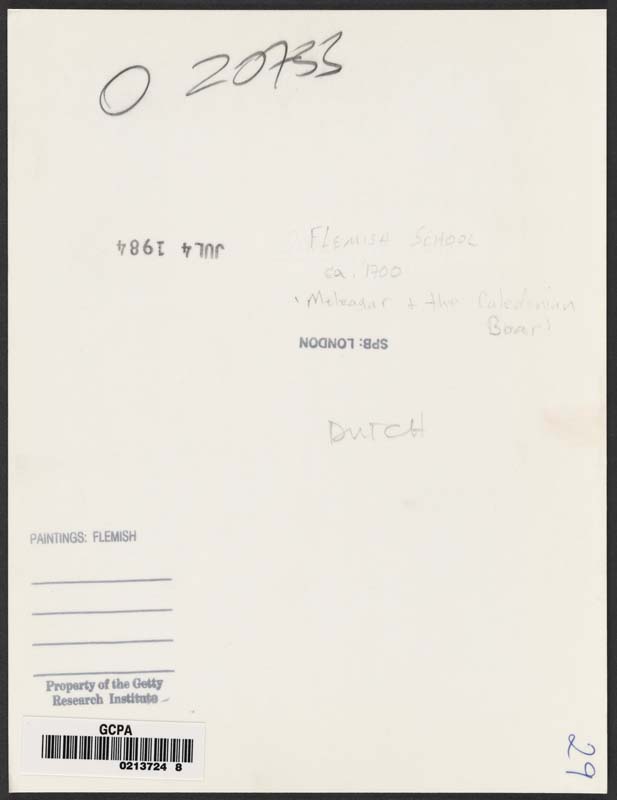 O 20733
JUL 4 1984
FLEMISH SCHOOL
ca. 1700
'Meleagar + the Caledonian
Boar'
SPB: LONDON
DUTCH
PAINTINGS: FLEMISH
Property of the Getty
Research Institute
GCPA
0213724 8
29